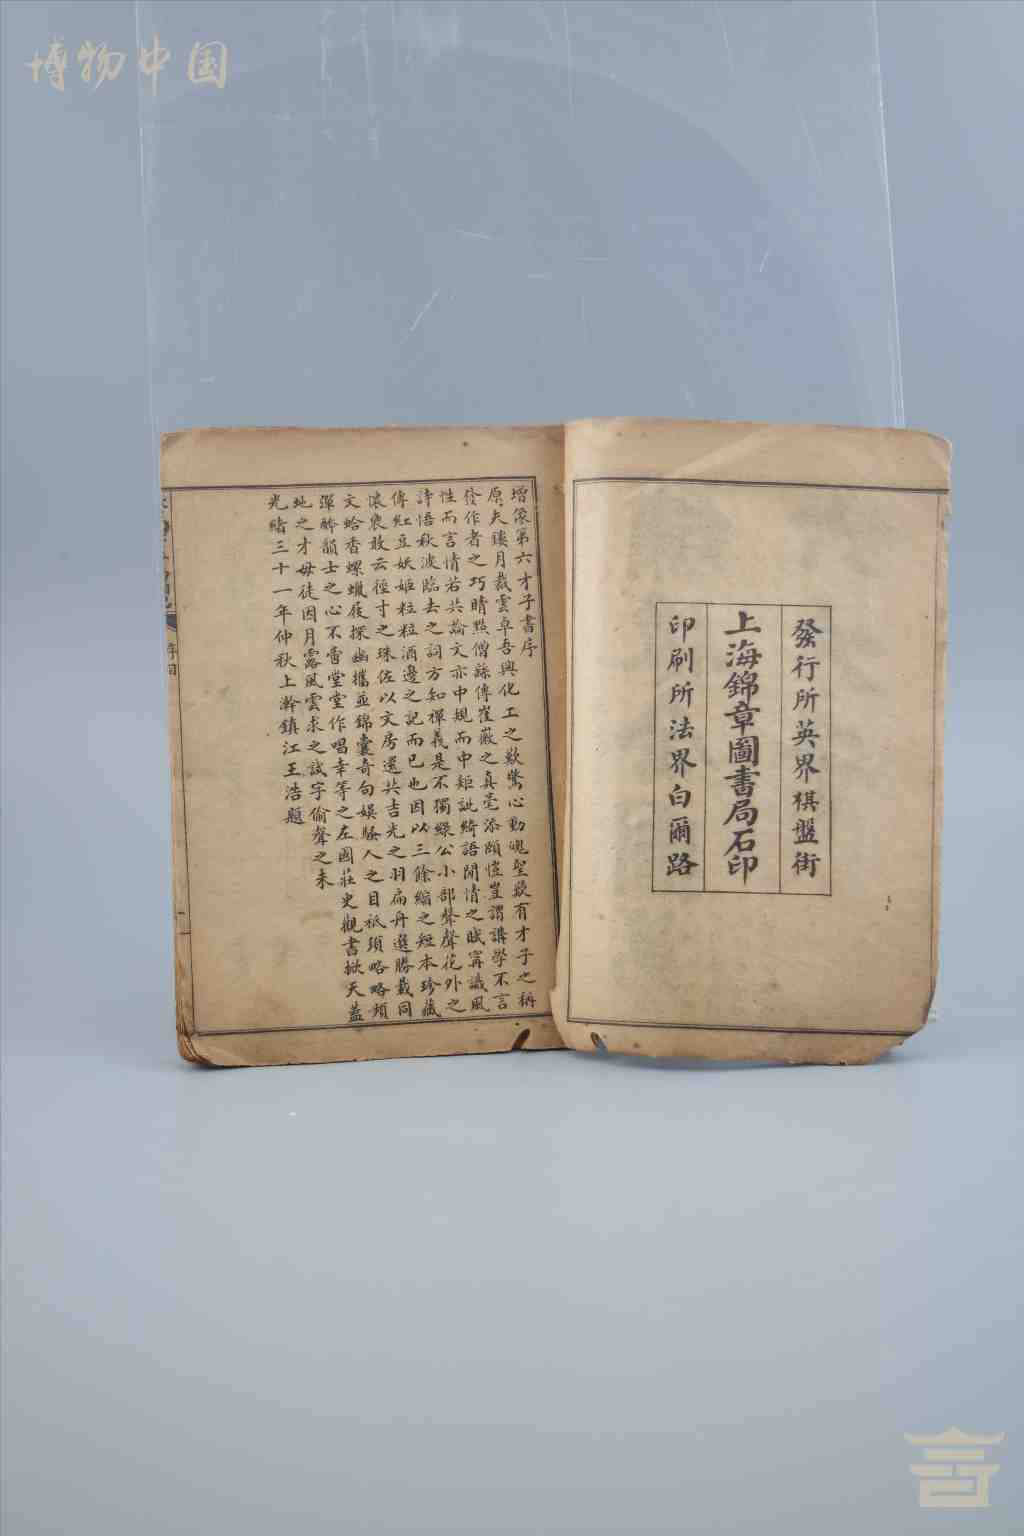 博物中国
發行所英界棋盤街
上海錦章圖書局石印
印刷所法界白爾路
增像第六才子書序
原夫鏤月裁雲卓吾興化工之歎驚心動魄聖歎有才子之稱
發作者之巧睛點僧繇傳崔薇之真毫添頤愷豈謂講學不言
性而言情若共論文亦中規而中矩訿綺語閒情之賦寗識風
詩悟秋波臨去之詞方知禪義是不獨綠公小部聲聲花外之
傳紅豆妖姬粒粒酒邊之記而已也因以三餘縮之短本珍藏
懷褱敢云徑寸之珠佐以文房還共吉光之羽扁舟選勝載同
文蛤香螺蠟屐探幽攜並錦囊奇句娱騷人之目祇頊略略頻
彈醉韻士之心不啻堂堂作唱幸等之左國莊史觀書掀天蓋
地之才毋徒因月露風雲求之試字偷聲之末
光緒三十一年仲秋上澣鎮江王浩題
序目
一